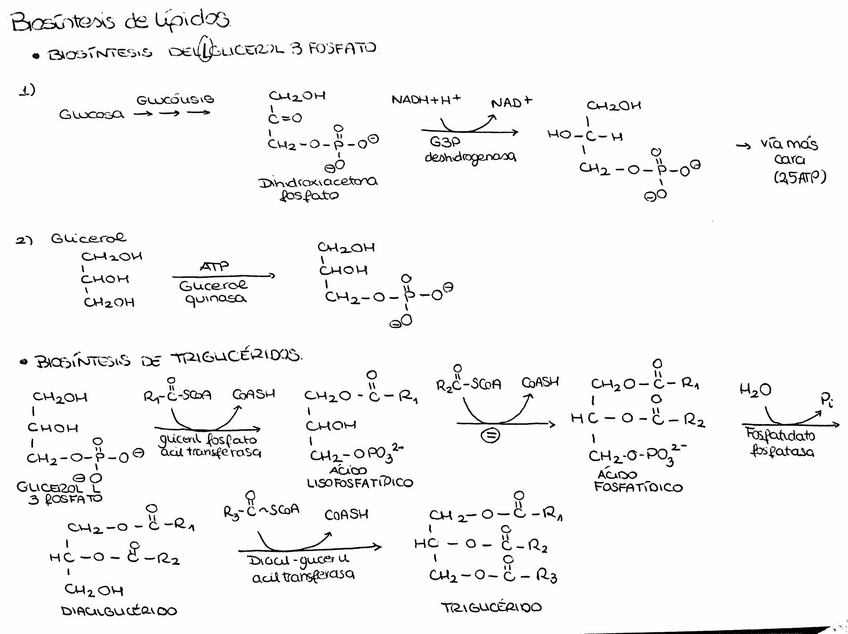 Biosíntesis de lípidos
• BIOSÍNTESIS DEL L GLICEROL 3 FOSFATO
1)
Glucosa → → → GLUCÓLISIS
CH2OH
C=O
CH2-O-P-O⊖
O
⊖O
Dihidroxiacetona
fosfato
NADH+H+ NAD+
G3P
deshidrogenasa
CH2OH
HO-C-H
CH2-O-P-O⊖
O
⊖O
→ vía más
cara
(2,5ATP)
2) Glicerol
CH2OH
CHOH
CH2OH
ATP
Glicerol
quinasa
CH2OH
CHOH
CH2-O-P-O⊖
O
⊖O
• BIOSÍNTESIS DE TRIGLICÉRIDOS.
CH2OH
CHOH
CH2-O-P-O⊖
O
⊖O
GLICEROL L
3 FOSFATO
O
R1-C-SCoA CoASH
gliceril fosfato
acil transferasa
O
CH2O-C-R1
CHOH
CH2-OPO3 2-
ÁCIDO
LISOFOSFATÍDICO
O
R2C-SCoA CoASH
=
O
CH2O-C-R1
O
HC-O-C-R2
CH2-O-PO3 2-
ÁCIDO
FOSFATÍDICO
H2O Pi
Fosfatidato
fosfatasa
O
CH2-O-C-R1
O
HC-O-C-R2
CH2OH
DIACILGLICÉRIDO
O
R3-C~SCoA CoASH
Diacil-gliceril
acil transferasa
O
CH2-O-C-R1
O
HC-O-C-R2
O
CH2-O-C-R3
TRIGLICÉRIDO